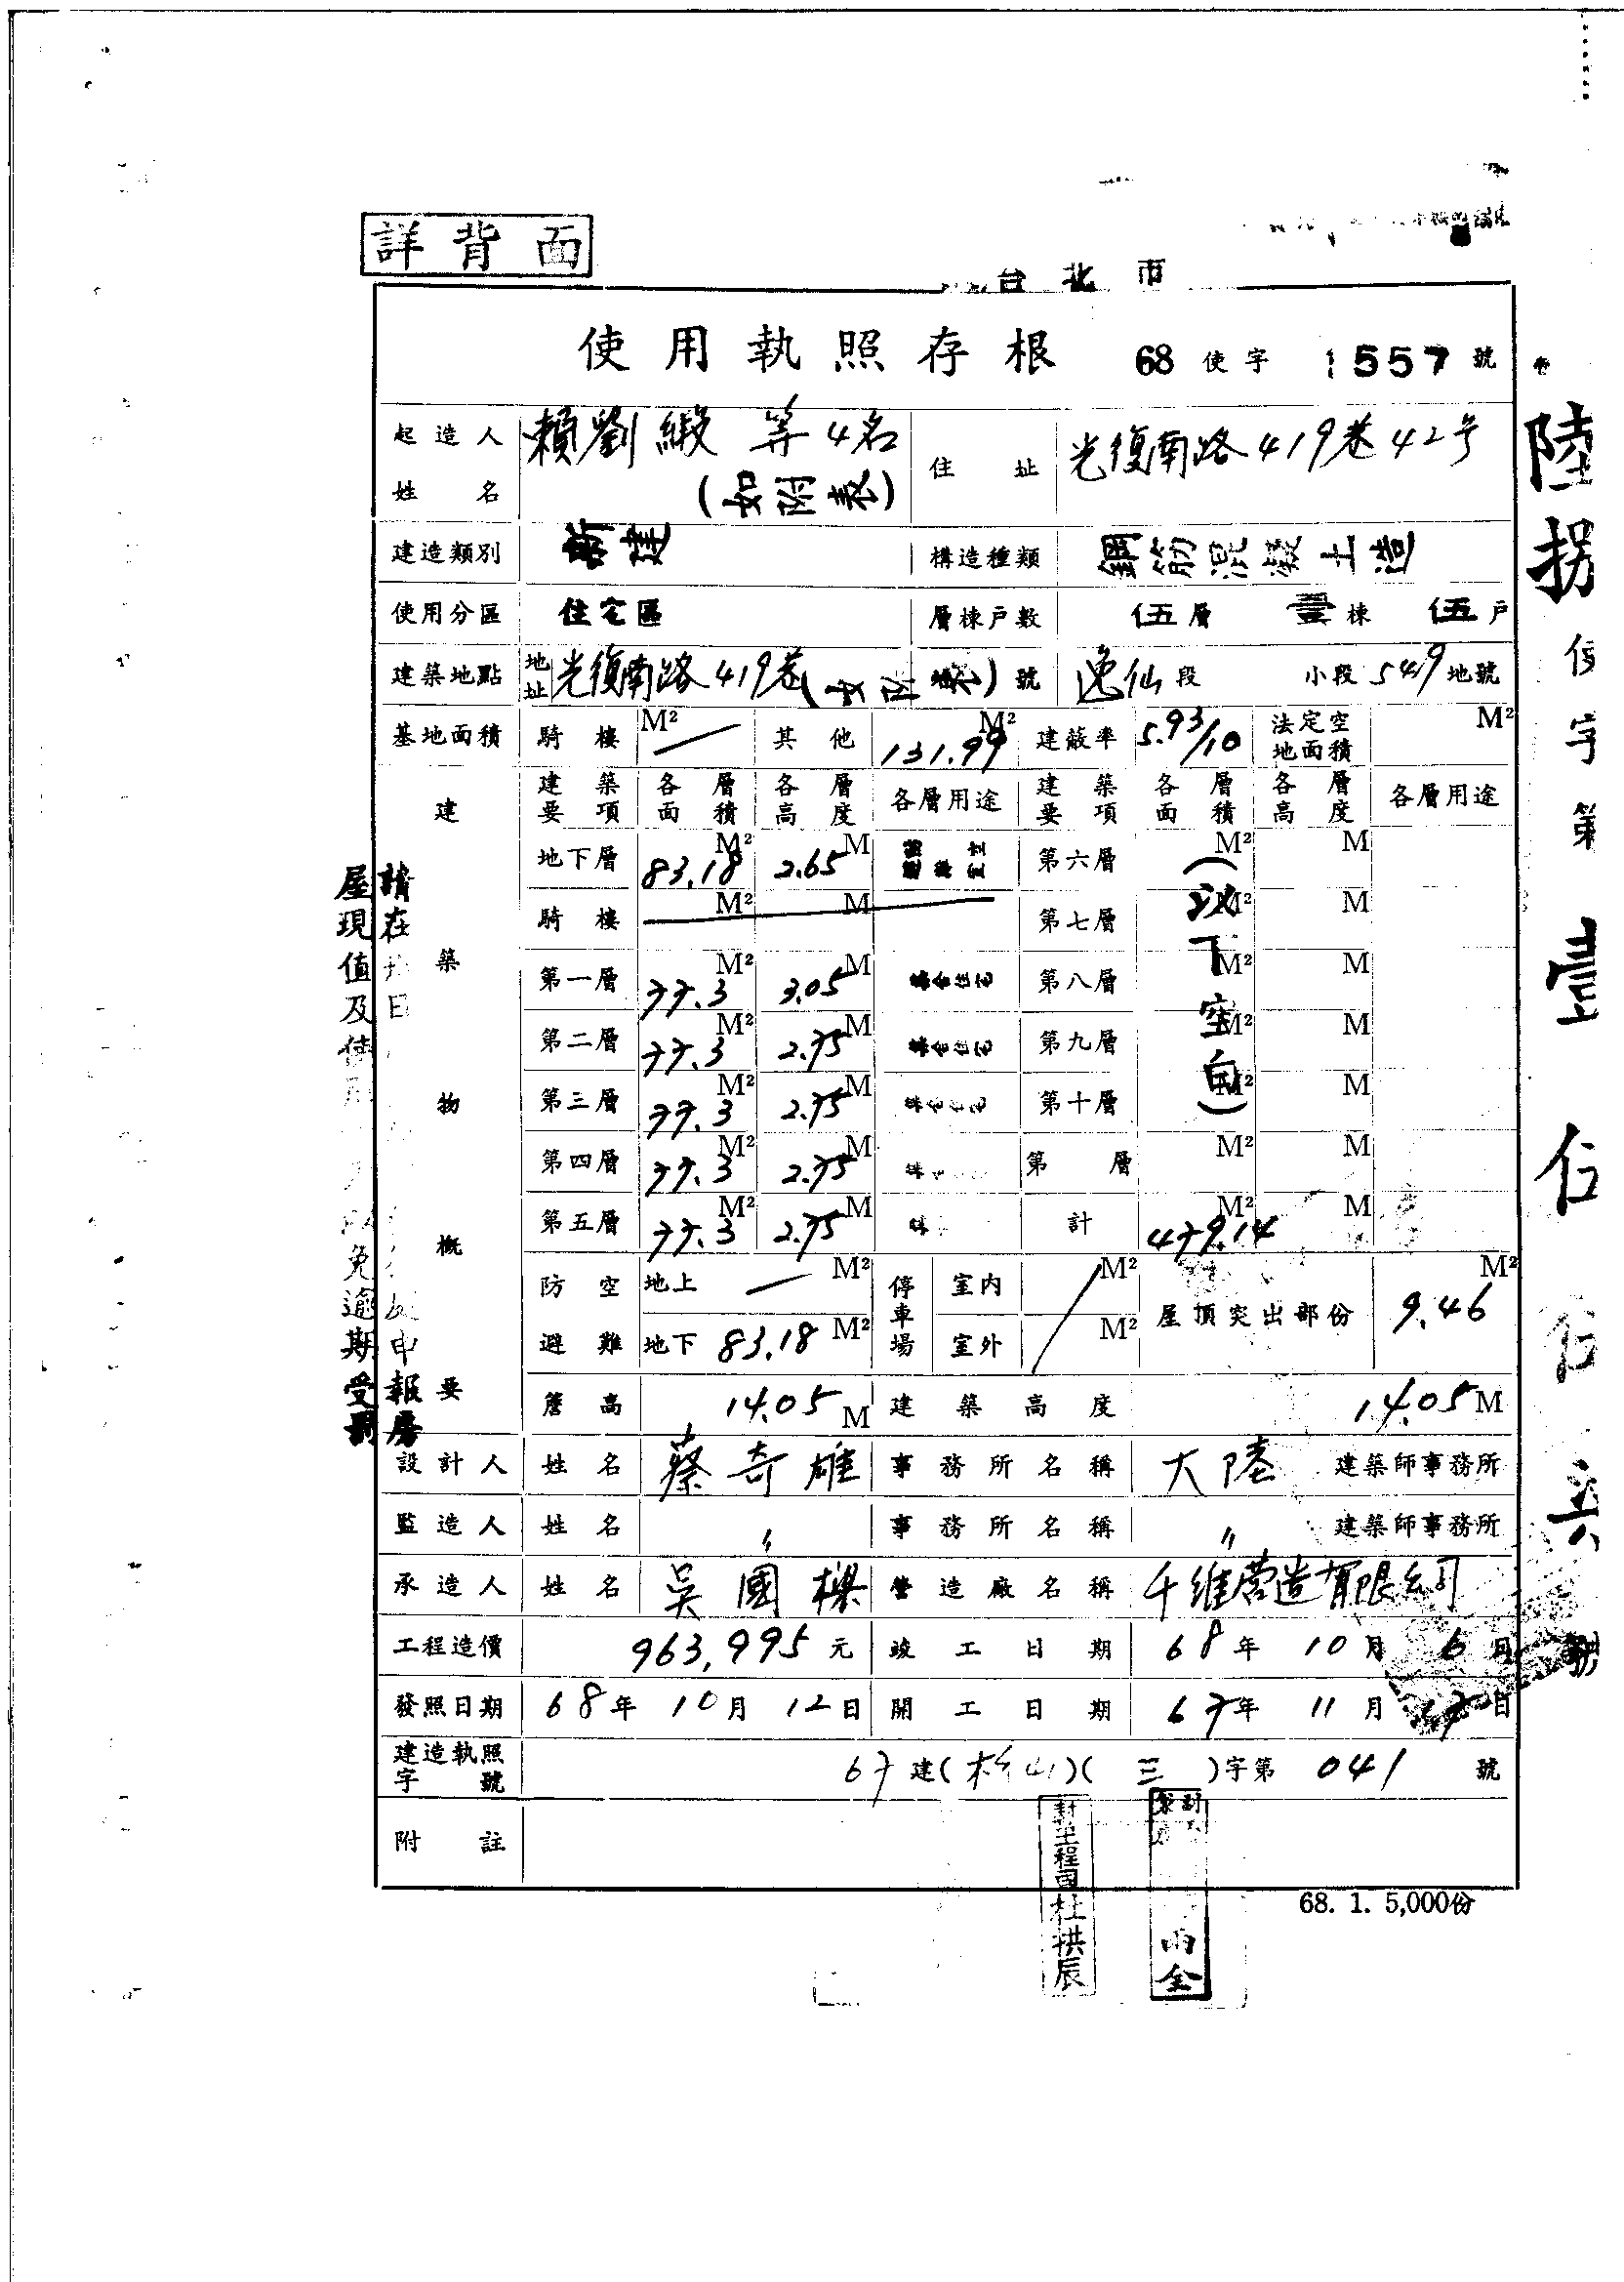 詳背面
台北市
使用執照存根 68 使字 1557 號
起造人姓名 賴劉緞 等4名 (如附表) 住址 光復南路419巷42号
建造類別 新建 構造種類 鋼筋混凝土造
使用分區 住宅區 層棟戶數 伍層 壹棟 伍戶
建築地點 地址 光復南路419巷 號 逸仙段 小段 549地號
基地面積 騎樓 M² 其他 131.99 M² 建蔽率 5.93/10 法定空地面積 M²
建築物概要
建築要項 各層面積 各層高度 各層用途 建築要項 各層面積 各層高度 各層用途
地下層 83.18 M² 2.65 M 第六層 M² M
騎樓 M² M 第七層 M² M
第一層 77.3 M² 3.05 M 第八層 M² M
第二層 77.3 M² 2.75 M 第九層 M² M
第三層 77.3 M² 2.75 M 第十層 M² M
第四層 77.3 M² 2.75 M 第 層 M² M
第五層 77.3 M² 2.75 M 計 479.14 M² M
(以下空白)
防空避難 地上 — M² 停車場 室內 M² 屋頂突出部份 9.46 M²
地下 83.18 M² 室外 M²
簷高 14.05 M 建築高度 14.05 M
設計人 姓名 蔡奇雄 事務所名稱 大陸 建築師事務所
監造人 姓名 〃 事務所名稱 〃 建築師事務所
承造人 姓名 吳國樑 營造廠名稱 千維營造有限公司
工程造價 963,995元 竣工日期 68年10月6日
發照日期 68年10月12日 開工日期 67年11月 日
建造執照字號 67建(松山)(三)字第041號
附註
68. 1. 5,000份
工程員杜拱辰
請在 日 申報房
屋現值及使 免逾期受罰
陸拐使字第壹伍伍 號